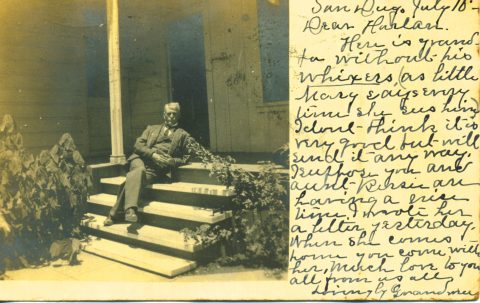 San Dieg. July 18-
Dear Harlan.
Here is grand-
pa without his
whixers (as little
Mary says every
time she sees him
I dont think it is
very good but will
send it any way.
I suppose you and
aunt are
having a nice
time. I wrote her
a letter yesterday.
When she comes
home you come with
her, Much love to you
all from us all
Lovingly Grandma